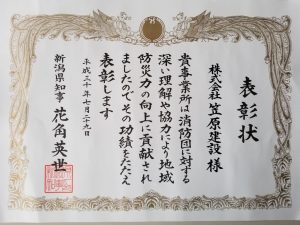 表彰状
株式会社 笠原建設 様
貴事業所は消防団に対する
深い理解や協力により地域
防災力の向上に貢献され
ましたのでその功績をたたえ
表彰します
平成三十年七月二十九日
新潟県知事 花角英世